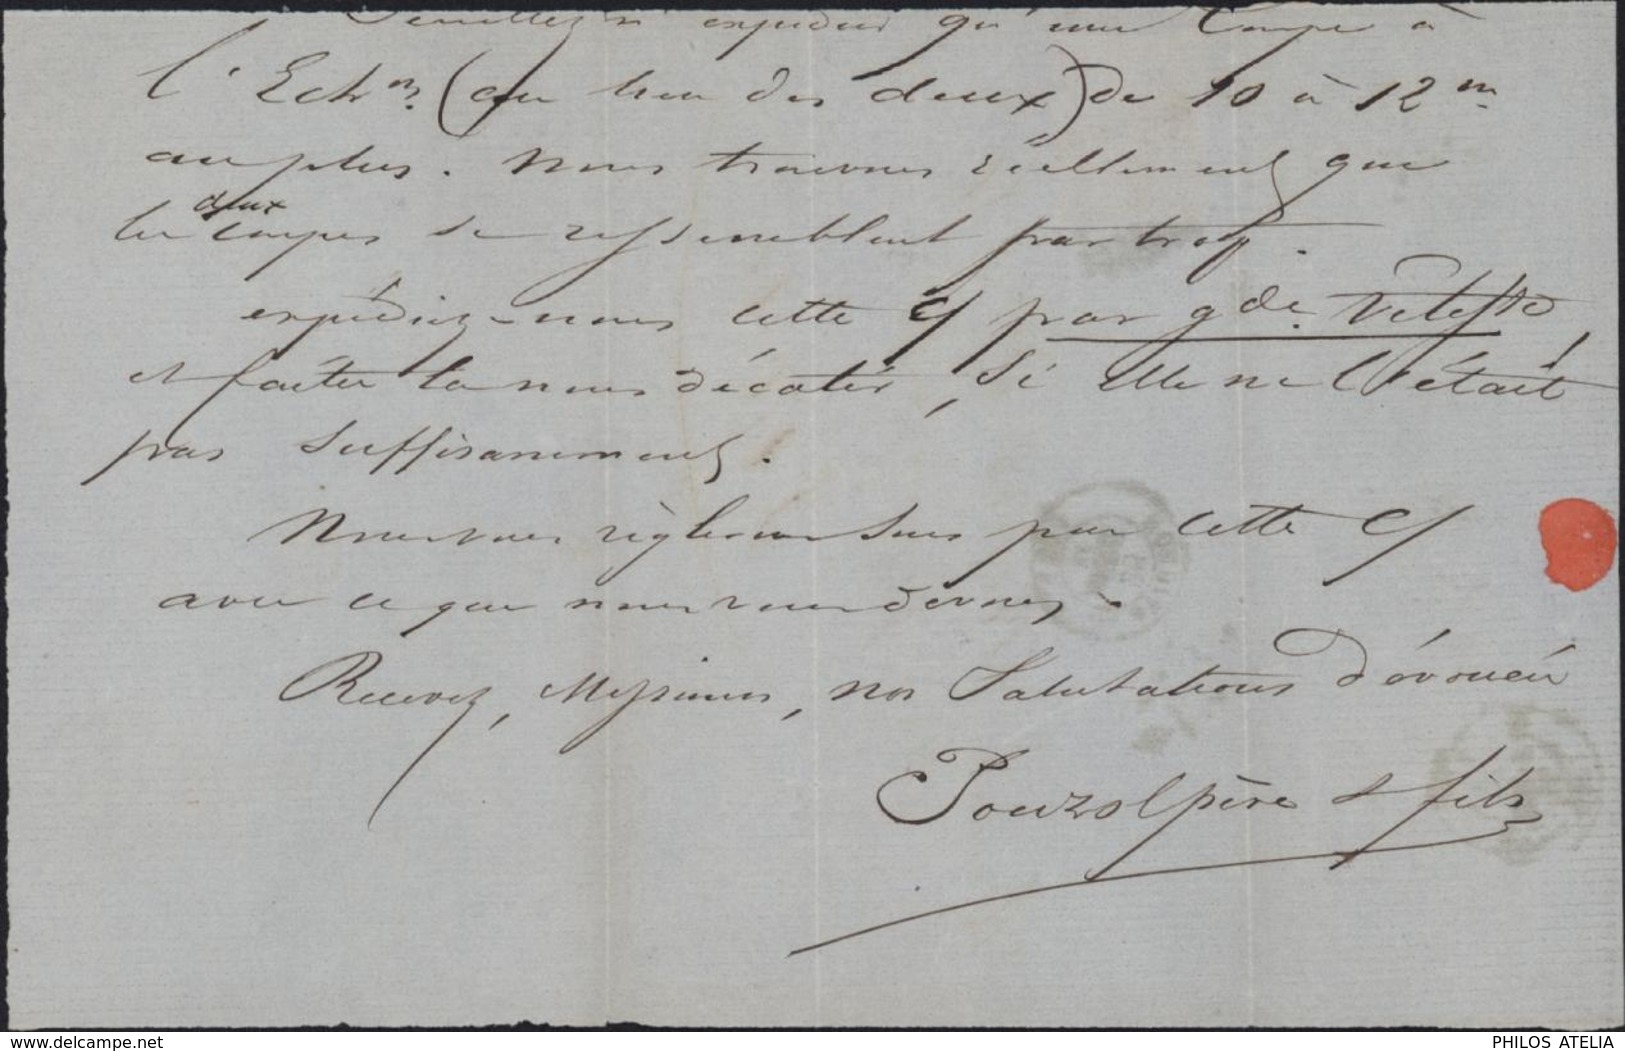 Veuillez n'expédier qu'une Coupe à
l'Echon (au lieu des deux) de 10 à 12 m
au plus. Nous trouvons réellement que
deux
les coupes se ressemblent par trop.
expédiez-nous cette C/ par gde. Vitesse
et faites la nous décatir, si elle ne l'était
pas suffisamment.
Nous vous règlerons sous peu cette C/
avec ce que nous vous devons.
Recevez, Messieurs, nos Salutations dévouées
Pouzol père & fils
www.delcampe.net
PHILOS ATELIA